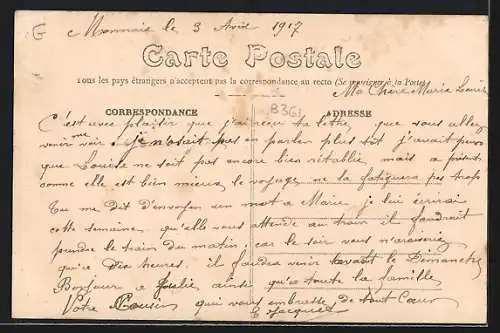 G
Monnaie le 3 Avril 1917
Carte Postale
Tous les pays étrangers n'acceptent pas la correspondance au recto (Se renseigner à la Poste)
Ma Chère Marie Louise
B361
CORRESPONDANCE ADRESSE
C'est avec plaisir que j'ai reçu ta lettre, que vous allez
venir me voir. je n'osait pas en parler plus tôt j'avait peur
que Louise ne soit pas encore bien rétablie, mais a présent
comme elle est bien mieux, le voyage ne la fatiguera pas trop
Tu me dit d'envoyer un mot a Marie, je lui écrirai
cette semaine qu'elle vous attende au train il faudrait
prendre le train du matin; car le soir vous n'arriveriez
qu'a dix heures. il faudra venir avant le Dimanche
Bonjour a Julie ainsi qu'a toute la famille
Votre Cousin qui vous embrasse de tout Cœur
Jacques